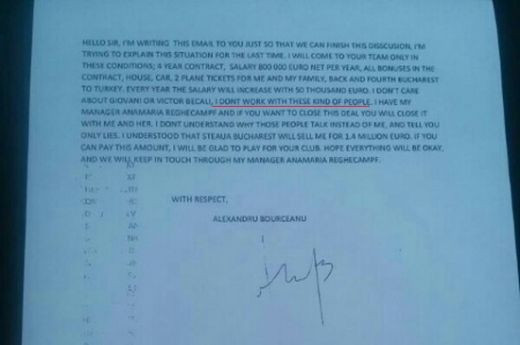 HELLO SIR, I'M WRITING THIS EMAIL TO YOU JUST SO THAT WE CAN FINISH THIS DISSCUSION, I'M
TRYING TO EXPLAIN THIS SITUATION FOR THE LAST TIME. I WILL COME TO YOUR TEAM ONLY IN
THESE CONDITIONS; 4 YEAR CONTRACT, SALARY 800 000 EURO NET PER YEAR, ALL BONUSES IN THE
CONTRACT, HOUSE, CAR, 2 PLANE TICKETS FOR ME AND MY FAMILY, BACK AND FOURTH BUCHAREST
TO TURKEY. EVERY YEAR THE SALARY WILL INCREASE WITH 50 THOUSAND EURO. I DON'T CARE
ABOUT GIOVANI OR VICTOR BECALI, I DONT WORK WITH THESE KIND OF PEOPLE. I HAVE MY
MANAGER ANAMARIA REGHECAMPF AND IF YOU WANT TO CLOSE THIS DEAL YOU WILL CLOSE IT
WITH ME AND HER. I DONT UNDERSTAND WHY THOSE PEOPLE TALK INSTEAD OF ME, AND TELL YOU
ONLY LIES. I UNDERSTOOD THAT STEAUA BUCHAREST WILL SELL ME FOR 1.4 MILLION EURO. IF YOU
CAN PAY THIS AMOUNT, I WILL BE GLAD TO PLAY FOR YOUR CLUB. HOPE EVERYTHING WILL BE OKAY,
AND WE WILL KEEP IN TOUCH THROUGH MY MANAGER ANAMARIA REGHECAMPF.
WITH RESPECT,
ALEXANDRU BOURCEANU